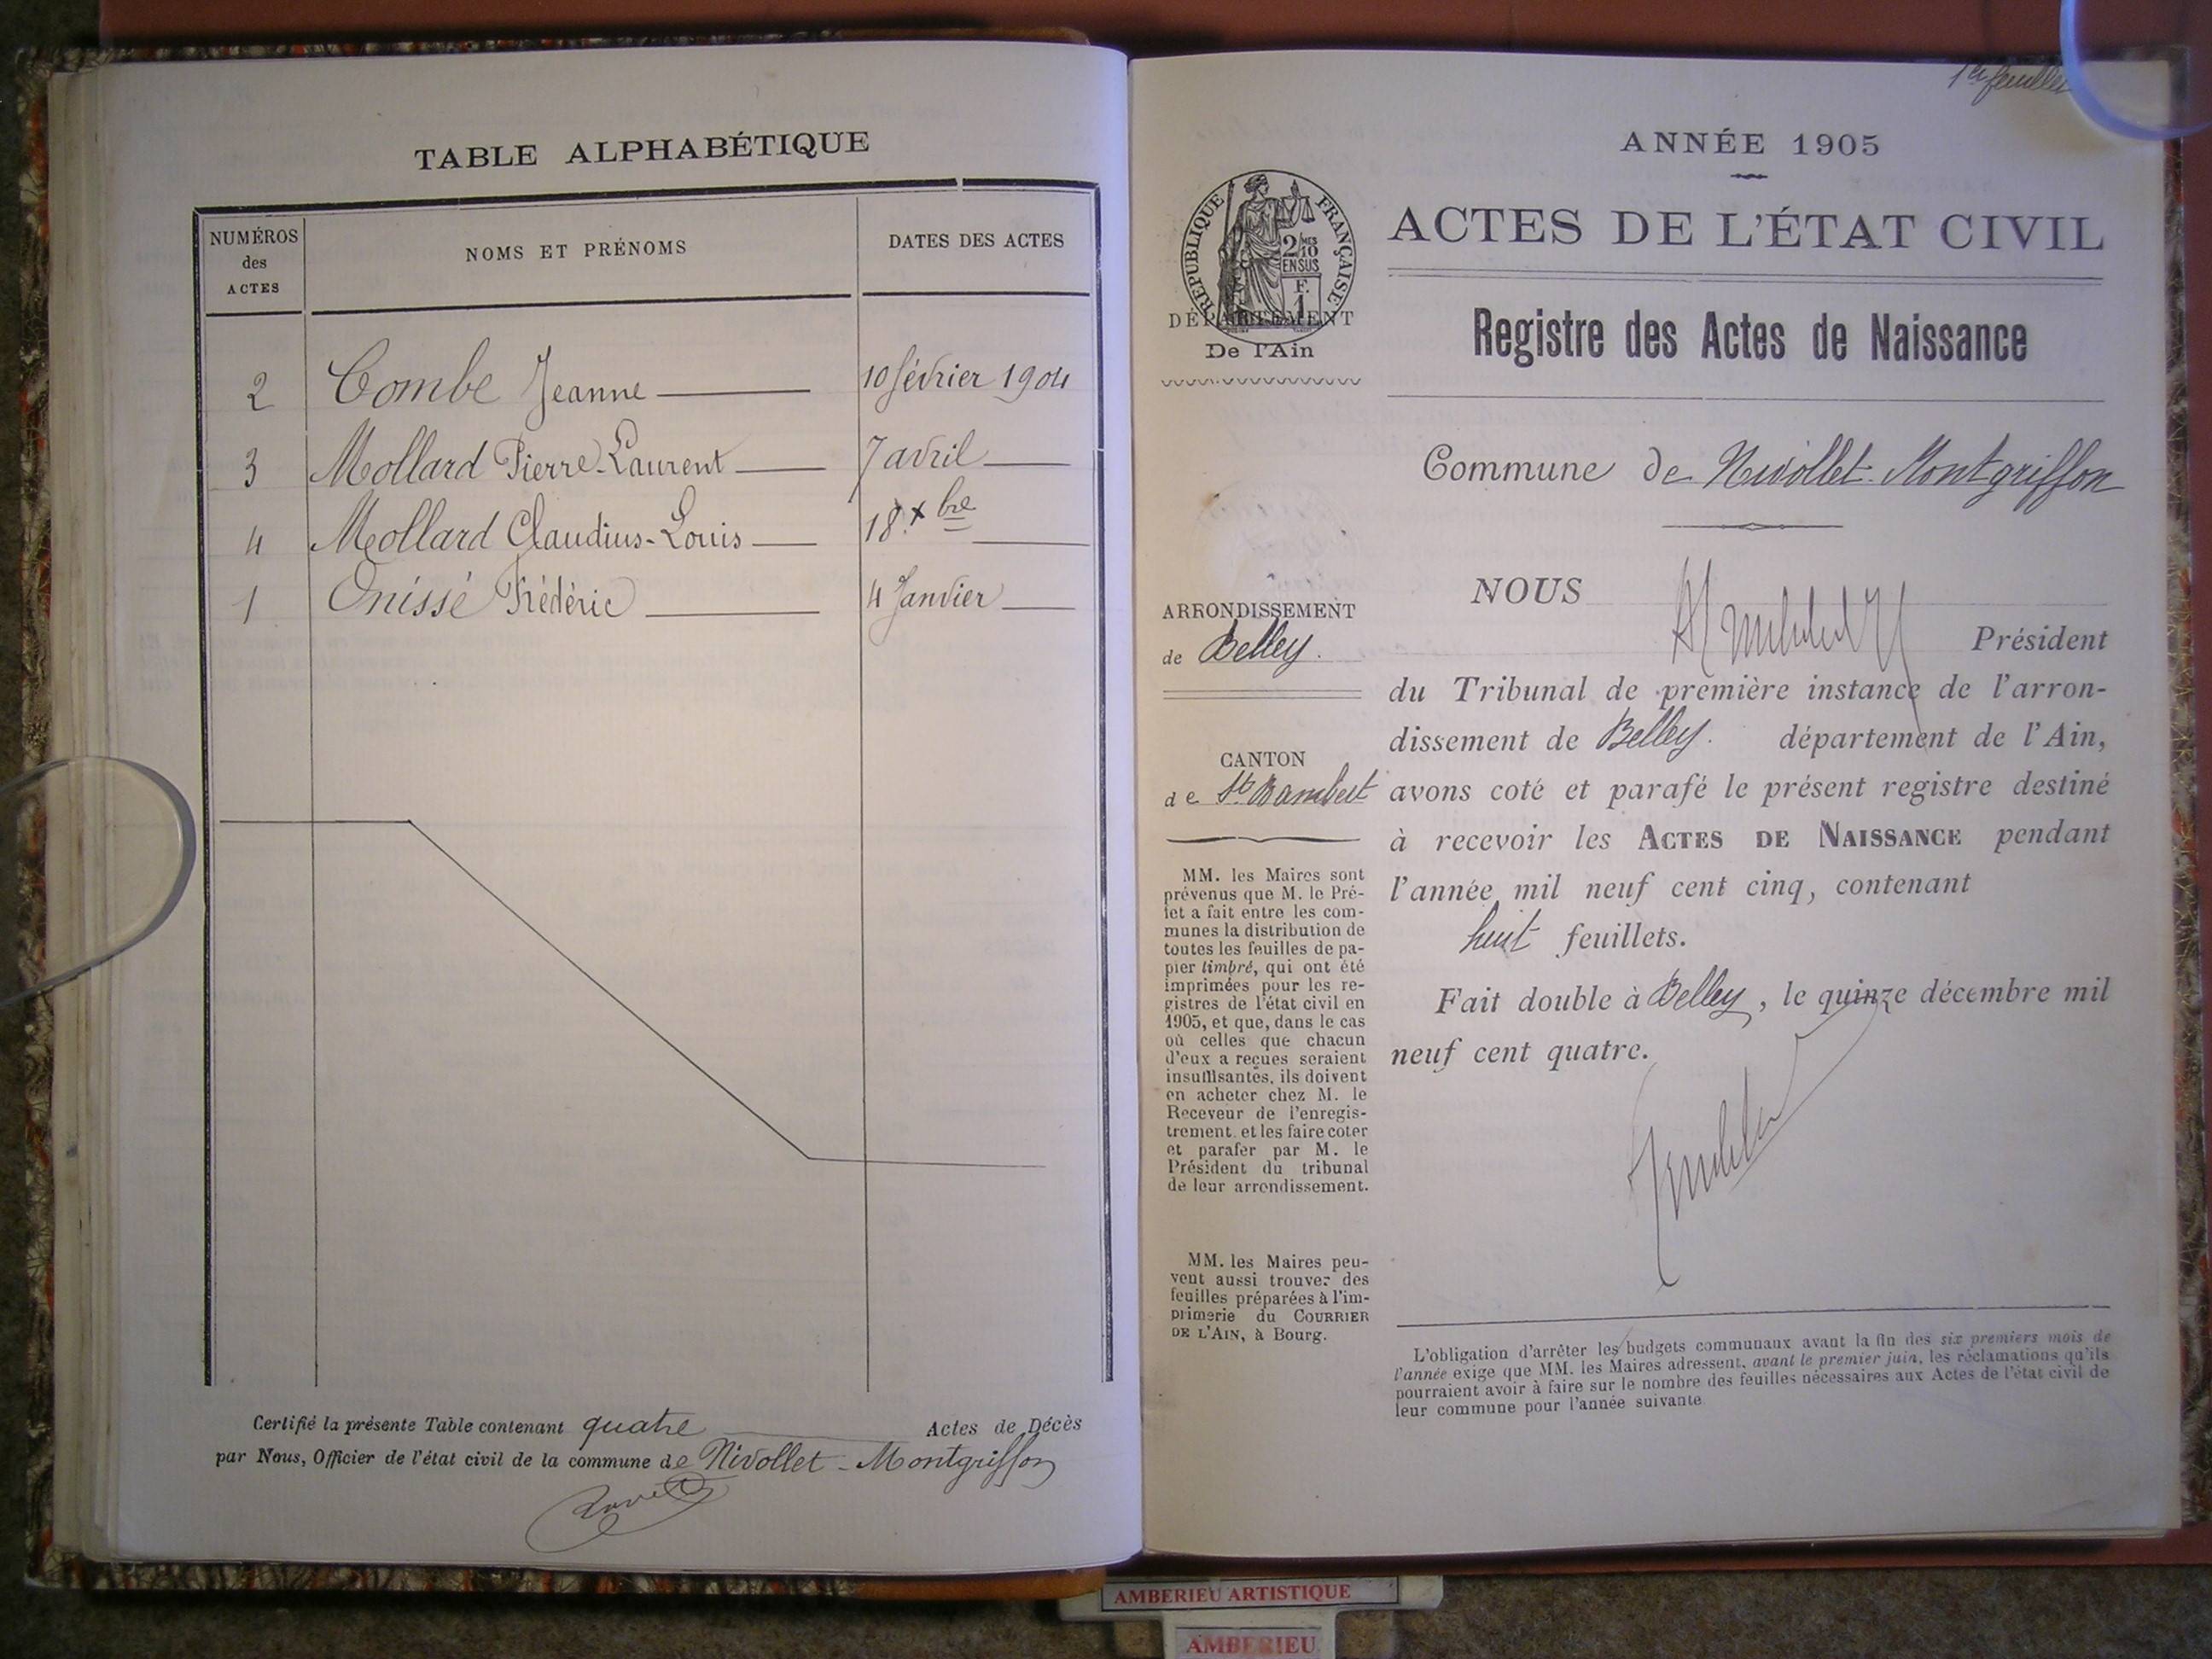 TABLE ALPHABÉTIQUE
NUMÉROS
des
ACTES
NOMS ET PRÉNOMS
DATES DES ACTES
2 Combe Jeanne 10 février 1904
3 Mollard Pierre-Laurent 7 avril
4 Mollard Claudius-Louis 18 Xbre
1 Onissé Frédéric 4 Janvier
Certifié la présente Table contenant quatre Actes de Décès
par Nous, Officier de l'état civil de la commune de Nivollet-Montgriffon
1er feuillet
ANNÉE 1905
ACTES DE L'ÉTAT CIVIL
Registre des Actes de Naissance
Commune de Nivollet-Montgriffon
RÉPUBLIQUE FRANÇAISE
2/10
EN SUS
F.
1
DÉPARTEMENT
De l'Ain
ARRONDISSEMENT
de Belley.
CANTON
de St Rambert
MM. les Maires sont
prévenus que M. le Pré-
fet a fait entre les com-
munes la distribution de
toutes les feuilles de pa-
pier timbré, qui ont été
imprimées pour les re-
gistres de l'état civil en
1905, et que, dans le cas
où celles que chacun
d'eux a reçues seraient
insuffisantes, ils doivent
en acheter chez M. le
Receveur de l'enregis-
trement et les faire coter
et parafer par M. le
Président du tribunal
de leur arrondissement.
MM. les Maires peu-
vent aussi trouver des
feuilles préparées à l'im-
primerie du COURRIER
DE L'AIN, à Bourg.
NOUS
Président
du Tribunal de première instance de l'arron-
dissement de Belley. département de l'Ain,
avons coté et parafé le présent registre destiné
à recevoir les ACTES DE NAISSANCE pendant
l'année mil neuf cent cinq, contenant
huit feuillets.
Fait double à Belley, le quinze décembre mil
neuf cent quatre.
L'obligation d'arrêter les budgets communaux avant la fin des six premiers mois de
l'année exige que MM. les Maires adressent, avant le premier juin, les réclamations qu'ils
pourraient avoir à faire sur le nombre des feuilles nécessaires aux Actes de l'état civil de
leur commune pour l'année suivante
AMBERIEU ARTISTIQUE
AMBERIEU